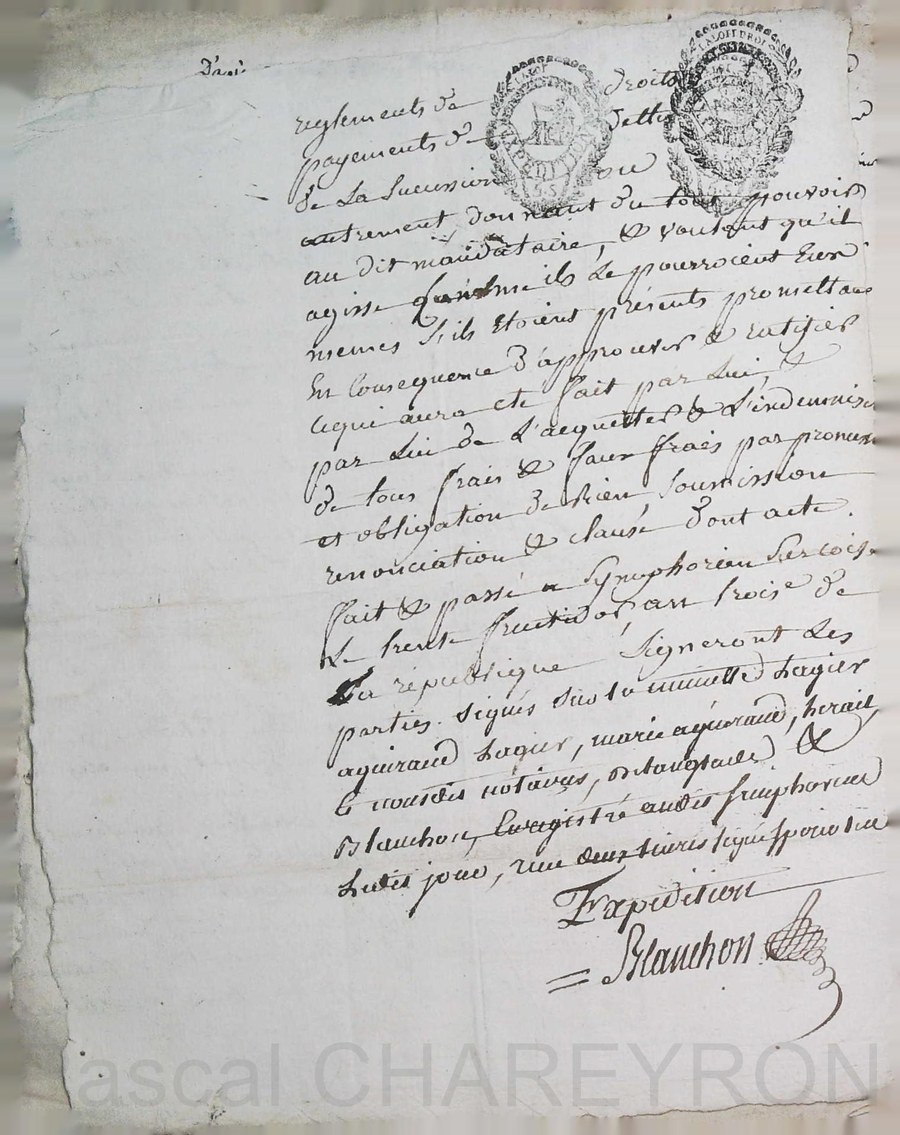 reglements de droits
payements de dettes
de La Succession ou
autrement donnant du tout pouvoir
au dit mandataire, & voulant qu'il
agisse Comme ils Le pourroient Eux
memes S'ils Etoient présents promettant
En Consequence D'approuver & Ratifier
Ce qui aura été fait par Lui, &
par Lui de L'acquitter & L'indemniser
de tous frais & faux frais par promesse
et obligation de Bien, Soumission
renonciation & clause dont acte.
fait & passé a Symphorien
Le trente fructidor, an troise de
La république Signeront Les
parties. Signés Sur la minutte hagier
aguiraud hagier, marie aguiraud, herail
& nousdis notaires, &
Blanchon, Enregistré audit Simphorien
Ledit jour, reçu deux livres signé
Expédition
Blanchon
EXPEDITION
LA LOI ET LE ROI
Pascal CHAREYRON